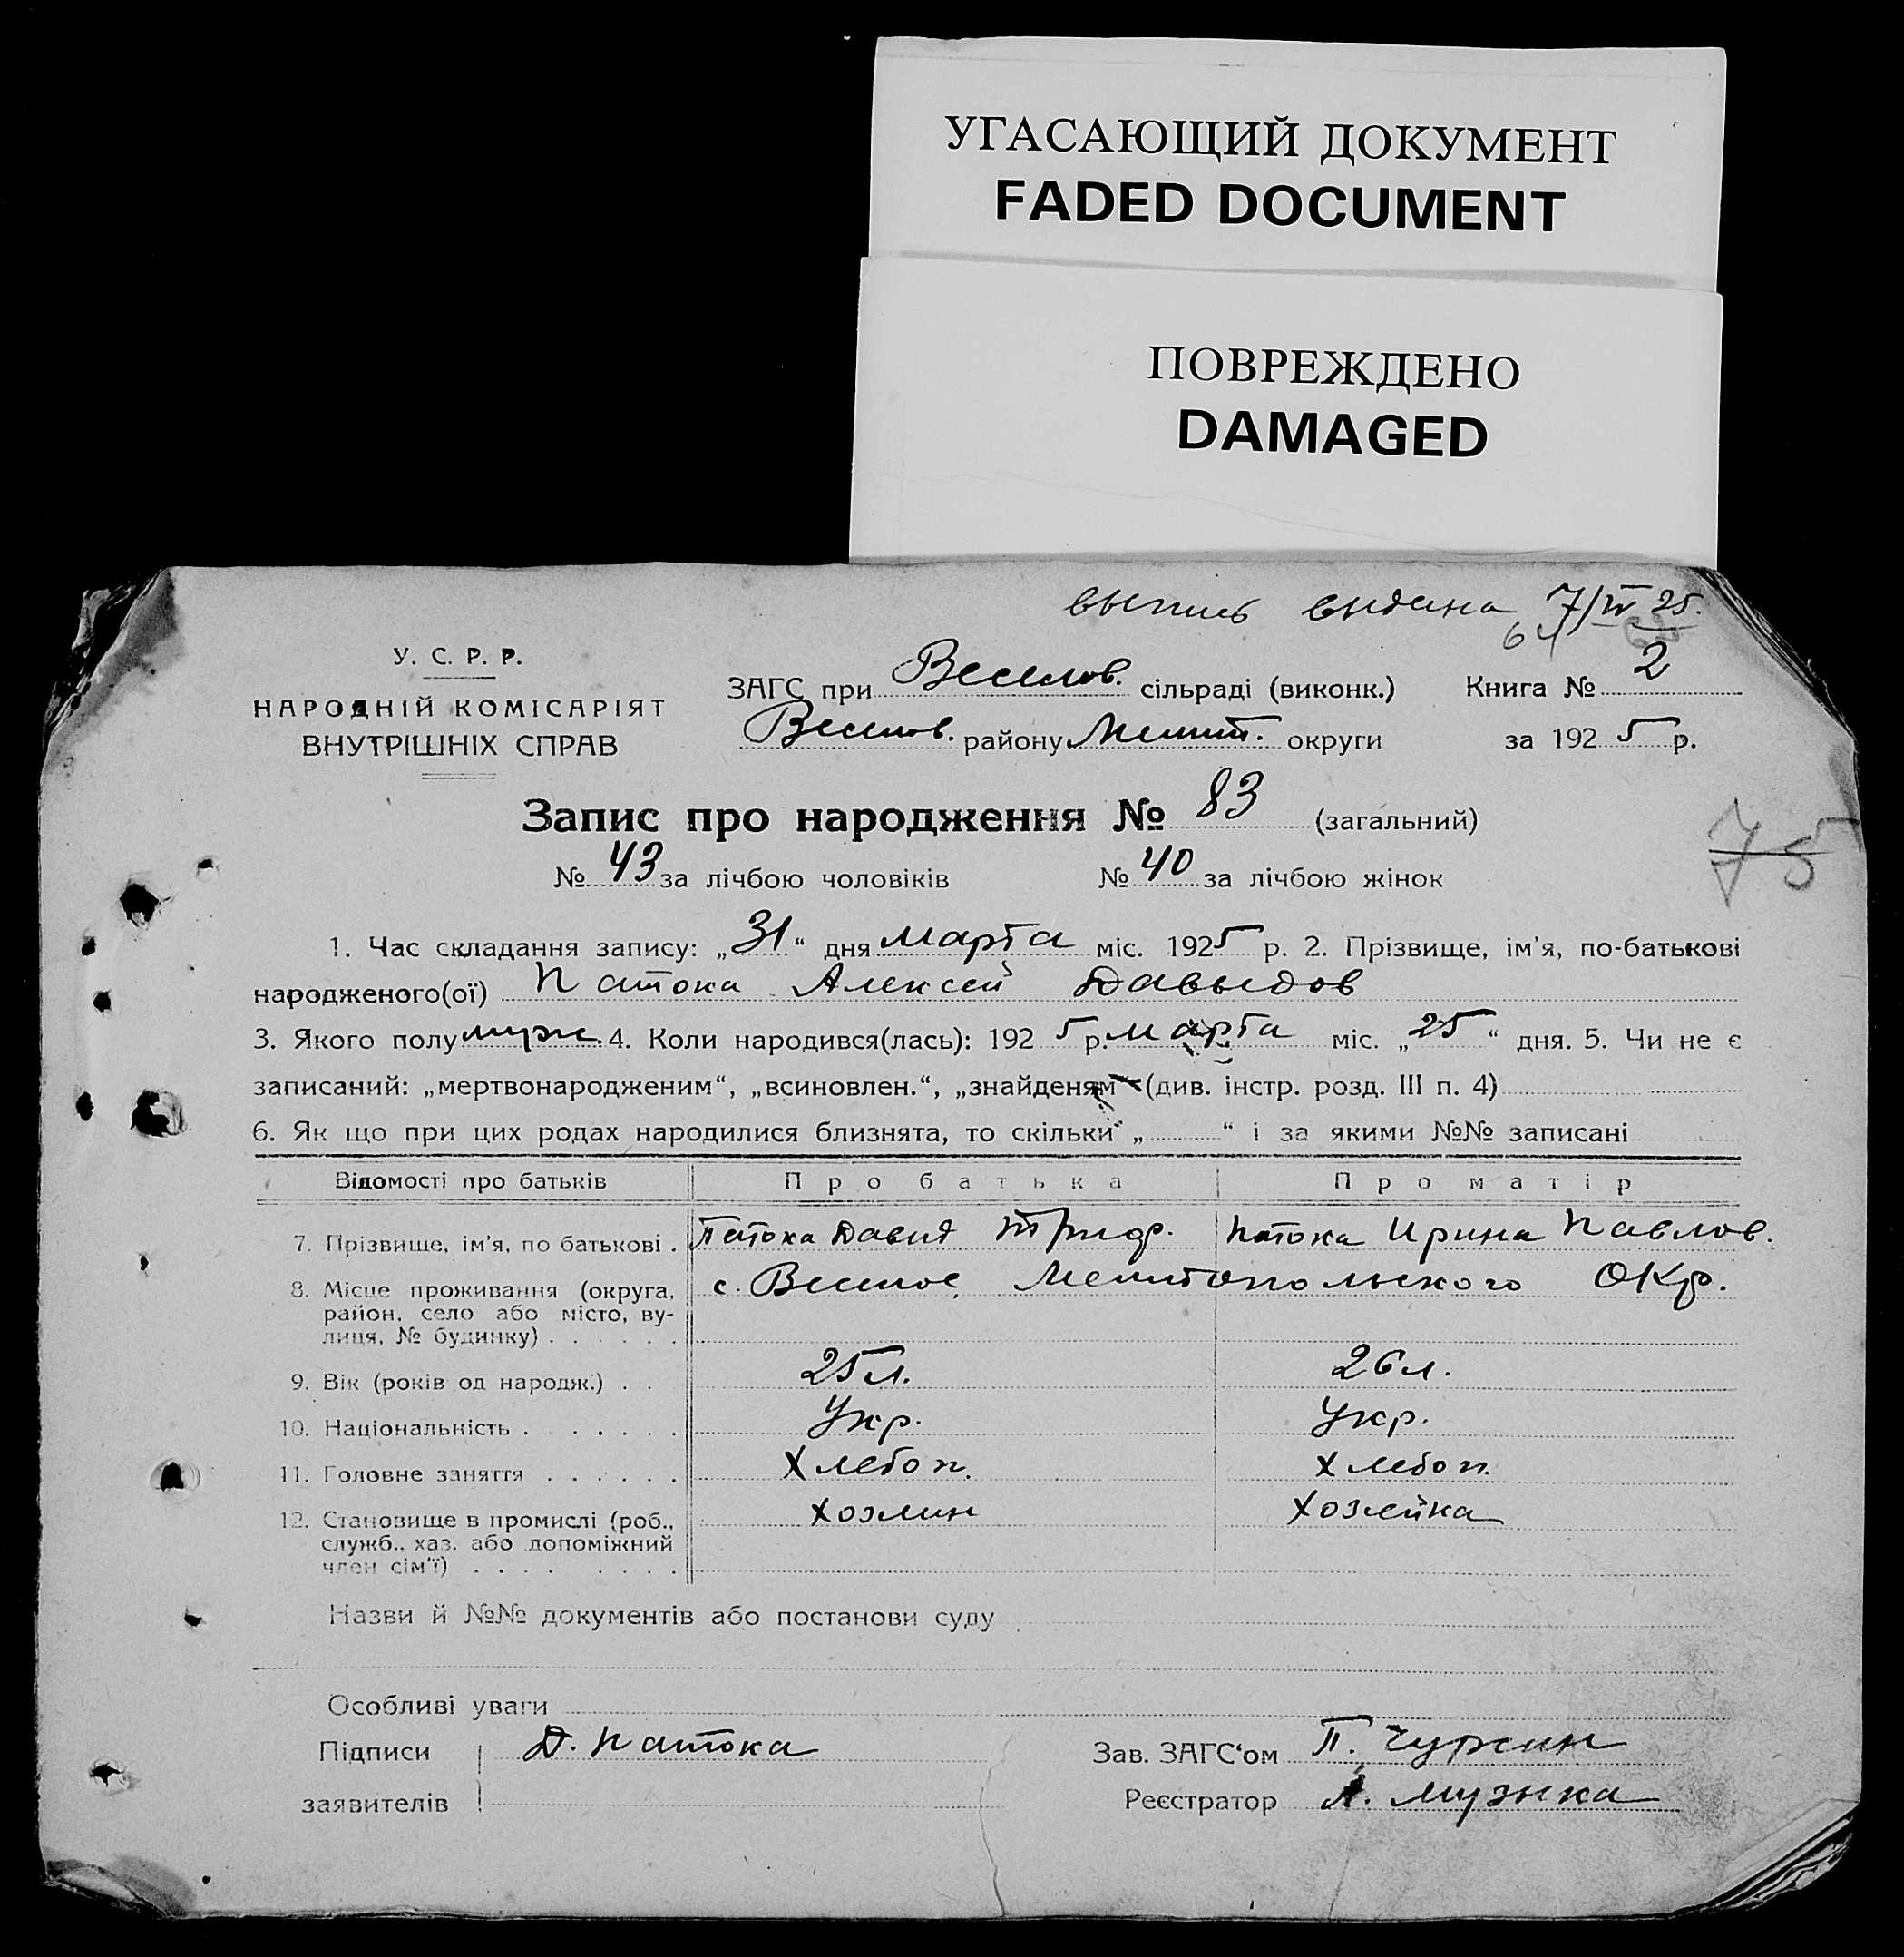 УГАСАЮЩИЙ ДОКУМЕНТ
FADED DOCUMENT
ПОВРЕЖДЕНО
DAMAGED
выпись выдана 7/IV 25.
У. С. Р. Р.
НАРОДНІЙ КОМІСАРІЯТ
ВНУТРІШНІХ СПРАВ
ЗАГС при Веселов. сільраді (виконк.) Книга № 2
Веселов. району Мелит. округи за 1925 р.
Запис про народження № 83 (загальний)
№ 43 за лічбою чоловіків № 40 за лічбою жінок
75
1. Час складання запису: „31“ дня Марта міс. 1925 р. 2. Прізвище, ім'я, по-батькові
народженого(ої) Патока Алексей Давыдов
3. Якого полу муж. 4. Коли народився(лась): 1925 р. Марта міс. „25“ дня. 5. Чи не є
записаний: „мертвонародженим“, „всиновлен.“, „знайденям“ (див. інстр. розд. III п. 4)
6. Як що при цих родах народилися близнята, то скільки „ “ і за якими №№ записані
Відомості про батьків Про батька Про матір
7. Прізвище, ім'я, по батькові . Патока Давид Патока Ирина Павлов.
8. Місце проживання (округа, с. Веселое Мелитопольского Окр.
район, село або місто, ву-
лиця, № будинку) . . . . . .
9. Вік (років од народж.) . . 25 л. 26 л.
10. Національність . . . . . . Укр. Укр.
11. Головне заняття . . . . . . Хлебоп. Хлебоп.
12. Становище в промислі (роб., Хозяин Хозяйка
служб., хаз. або допоміжний
член сім'ї) . . . . . . . .
Назви й №№ документів або постанови суду
Особливі уваги
Підписи Д. Патока Зав. ЗАГС‘ом П. Чурсин
заявителів Реєстратор А. Музыка